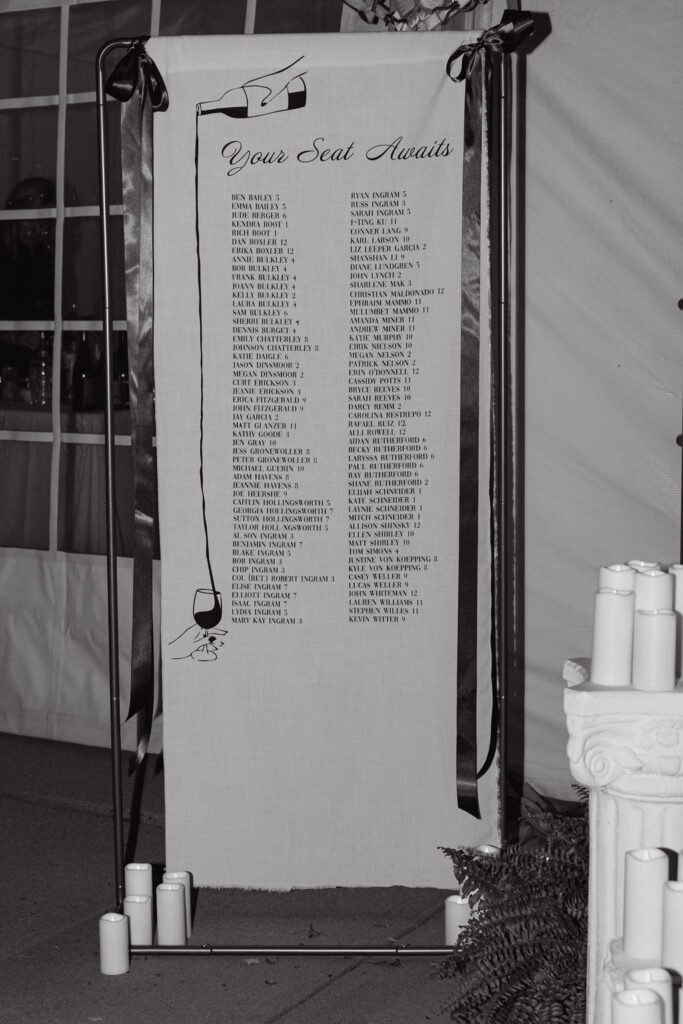 Your Seat Awaits
BEN BAILEY 5
EMMA BAILEY 5
JUDE BERGER 6
KENDRA BOOT 1
RICH BOOT 1
DAN BOXLER 12
ERIKA BOXLER 12
ANNIE BULKLEY 4
BOB BULKLEY 4
FRANK BULKLEY 4
JOANN BULKLEY 4
KELLY BULKLEY 2
LAURA BULKLEY 4
SAM BULKLEY 6
SHERRI BULKLEY 4
DENNIS BURGET 4
EMILY CHATTERLEY 8
JOHNSON CHATTERLEY 8
KATIE DAIGLE 6
JASON DINSMOOR 2
MEGAN DINSMOOR 2
CURT ERICKSON 3
JEANIE ERICKSON 3
ERICA FITZGERALD 9
JOHN FITZGERALD 9
JAY GARCIA 2
MATT GLANZER 11
KATHY GOODE 3
JEN GRAY 10
JESS GRONEWOLLER 8
PETER GRONEWOLLER 8
MICHAEL GUERIN 10
ADAM HAVENS 8
JEANNIE HAVENS 8
JOE HEERSHE 9
CAITLIN HOLLINGSWORTH 5
GEORGIA HOLLINGSWORTH 7
SUTTON HOLLINGSWORTH 7
TAYLOR HOLL NGSWORTH 5
AL SON INGRAM 3
BENJAMIN INGRAM 7
BLAKE INGRAM 5
BOB INGRAM 3
CHIP INGRAM 3
COL (RET) ROBERT INGRAM 3
ELISE INGRAM 7
ELLIOTT INGRAM 7
ISAAC INGRAM 7
LYDIA INGRAM 5
MARY KAY INGRAM 3
RYAN INGRAM 5
RUSS INGRAM 3
SARAH INGRAM 5
I-TING KU 11
CONNER LANG 9
KARL LARSON 10
LIZ LEEPER GARCIA 2
SHANSHAN LI 9
DIANE LUNDGREN 5
JOHN LYNCH 2
SHARLENE MAK 3
CHRISTIAN MALDONADO 12
EPHRAIM MAMMO 11
MULUMBET MAMMO 11
AMANDA MINER 11
ANDREW MINER 11
KATIE MURPHY 10
EIRIK NIELSON 10
MEGAN NELSON 2
PATRICK NELSON 2
ERIN O'DONNELL 12
CASSIDY POTTS 11
BRYCE REEVES 10
SARAH REEVES 10
DARCY REMM 2
CAROLINA RESTREPO 12
RAFAEL RUIZ 12
ALLI ROWELL 12
AIDAN RUTHERFORD 6
BECKY RUTHERFORD 6
LARYSSA RUTHERFORD 6
PAUL RUTHERFORD 6
RAY RUTHERFORD 6
SHANE RUTHERFORD 2
ELIJAH SCHNEIDER 1
KATE SCHNEIDER 1
LAYNIE SCHNEIDER 1
MITCH SCHNEIDER 1
ALLISON SHINSKY 12
ELLEN SHIRLEY 10
MATT SHIRLEY 10
TOM SIMONS 4
JUSTINE VON KOEPPING 8
KYLE VON KOEPPING 8
CASEY WELLER 9
LUCAS WELLER 9
JOHN WHITEMAN 12
LAUREN WILLIAMS 11
STEPHEN WILLES 11
KEVIN WITTER 9